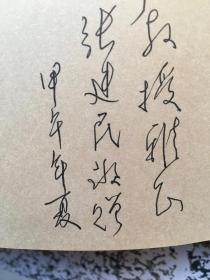 教授雅正
张建民敬赠
甲午年夏